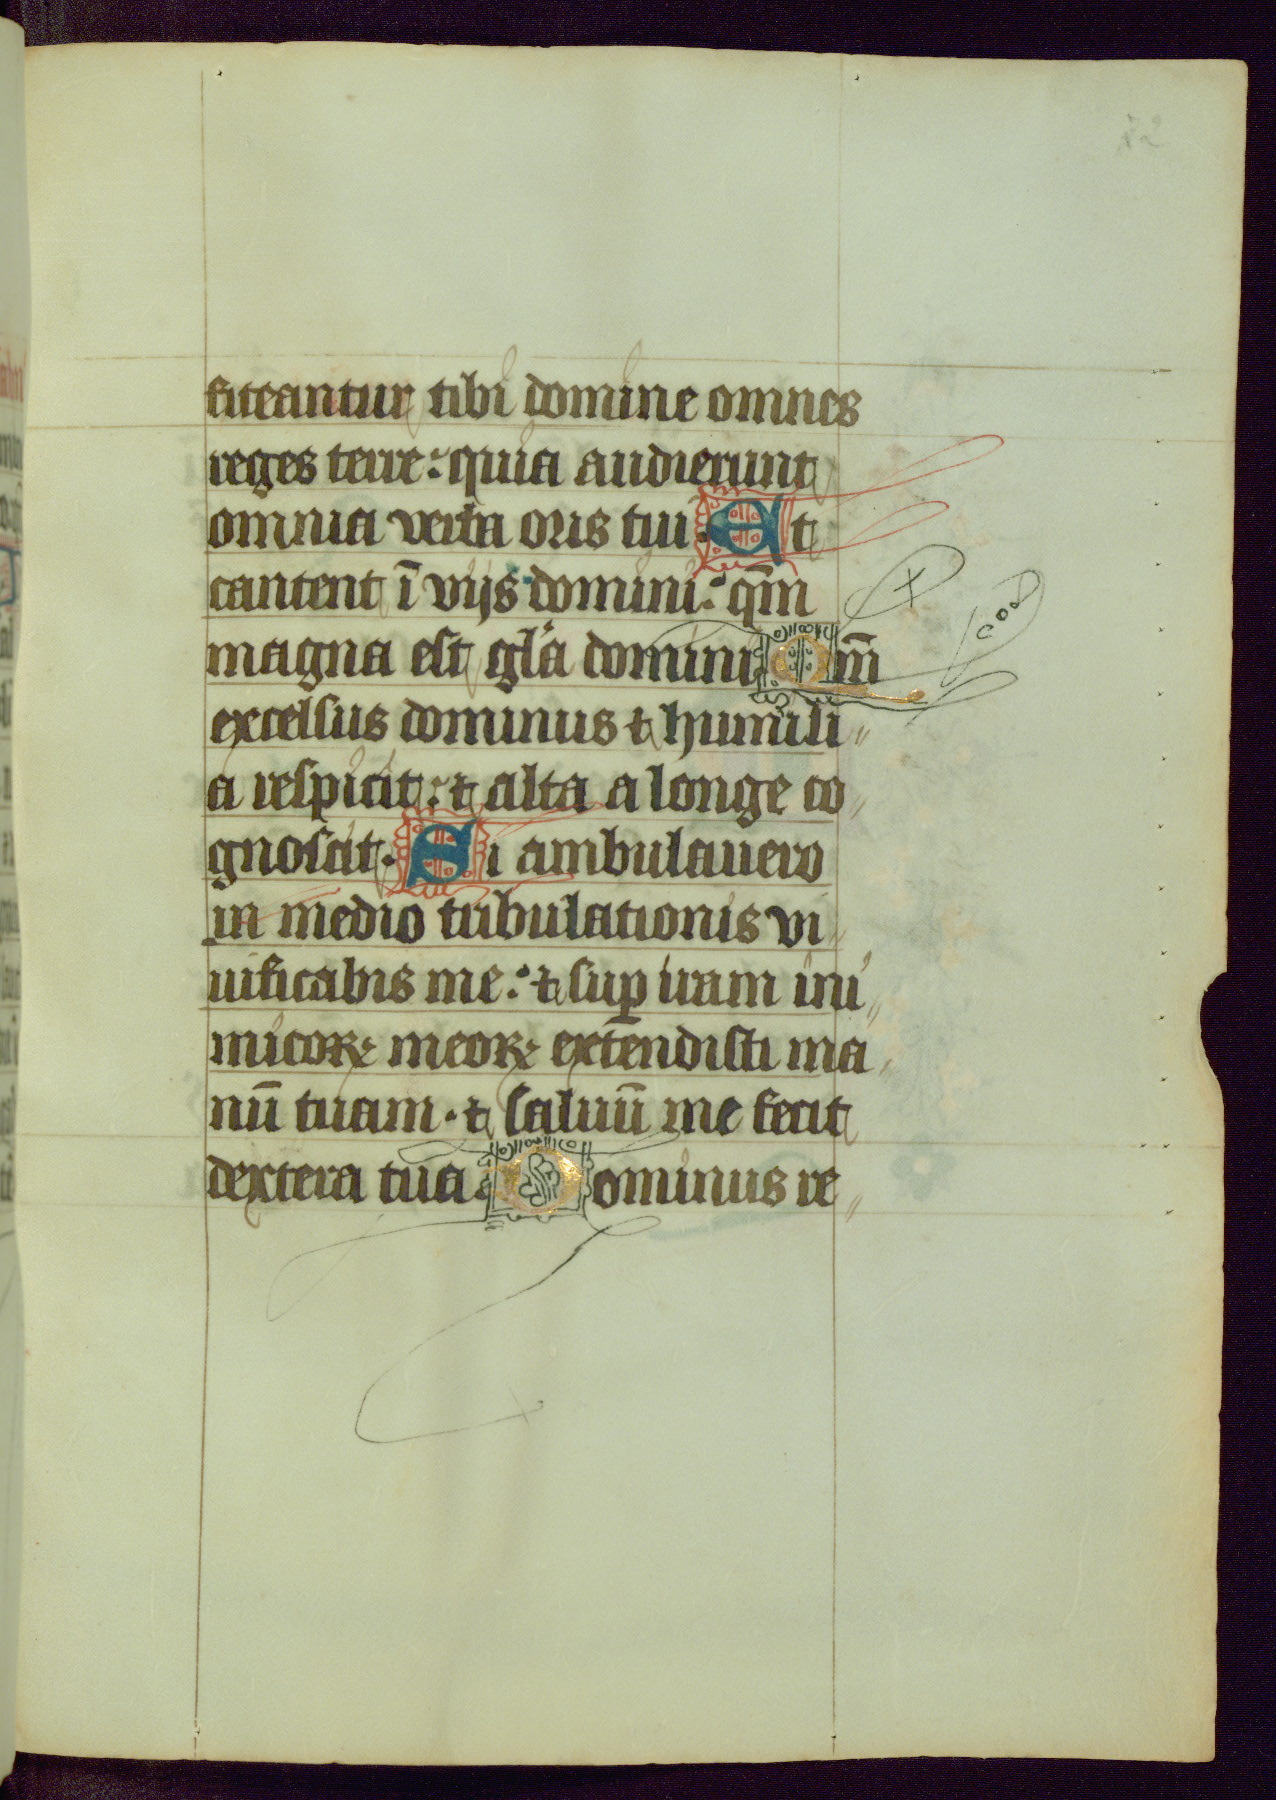 fiteantur tibi domine omnes
reges terre: quia audierunt
omnia verba oris tui. Et
cantent ī viis domini: qm̄
magna est gl̄a domini. Qm̄
excelsus dominus ⁊ humili
a respicit: ⁊ alta a longe co
gnoscit. Si ambulauero
in medio tribulationis vi
uificabis me: ⁊ suꝑ iram ini
micoꝝ meoꝝ extendisti ma
nū tuam. ⁊ saluū me fecit
dextera tua. Dominus re